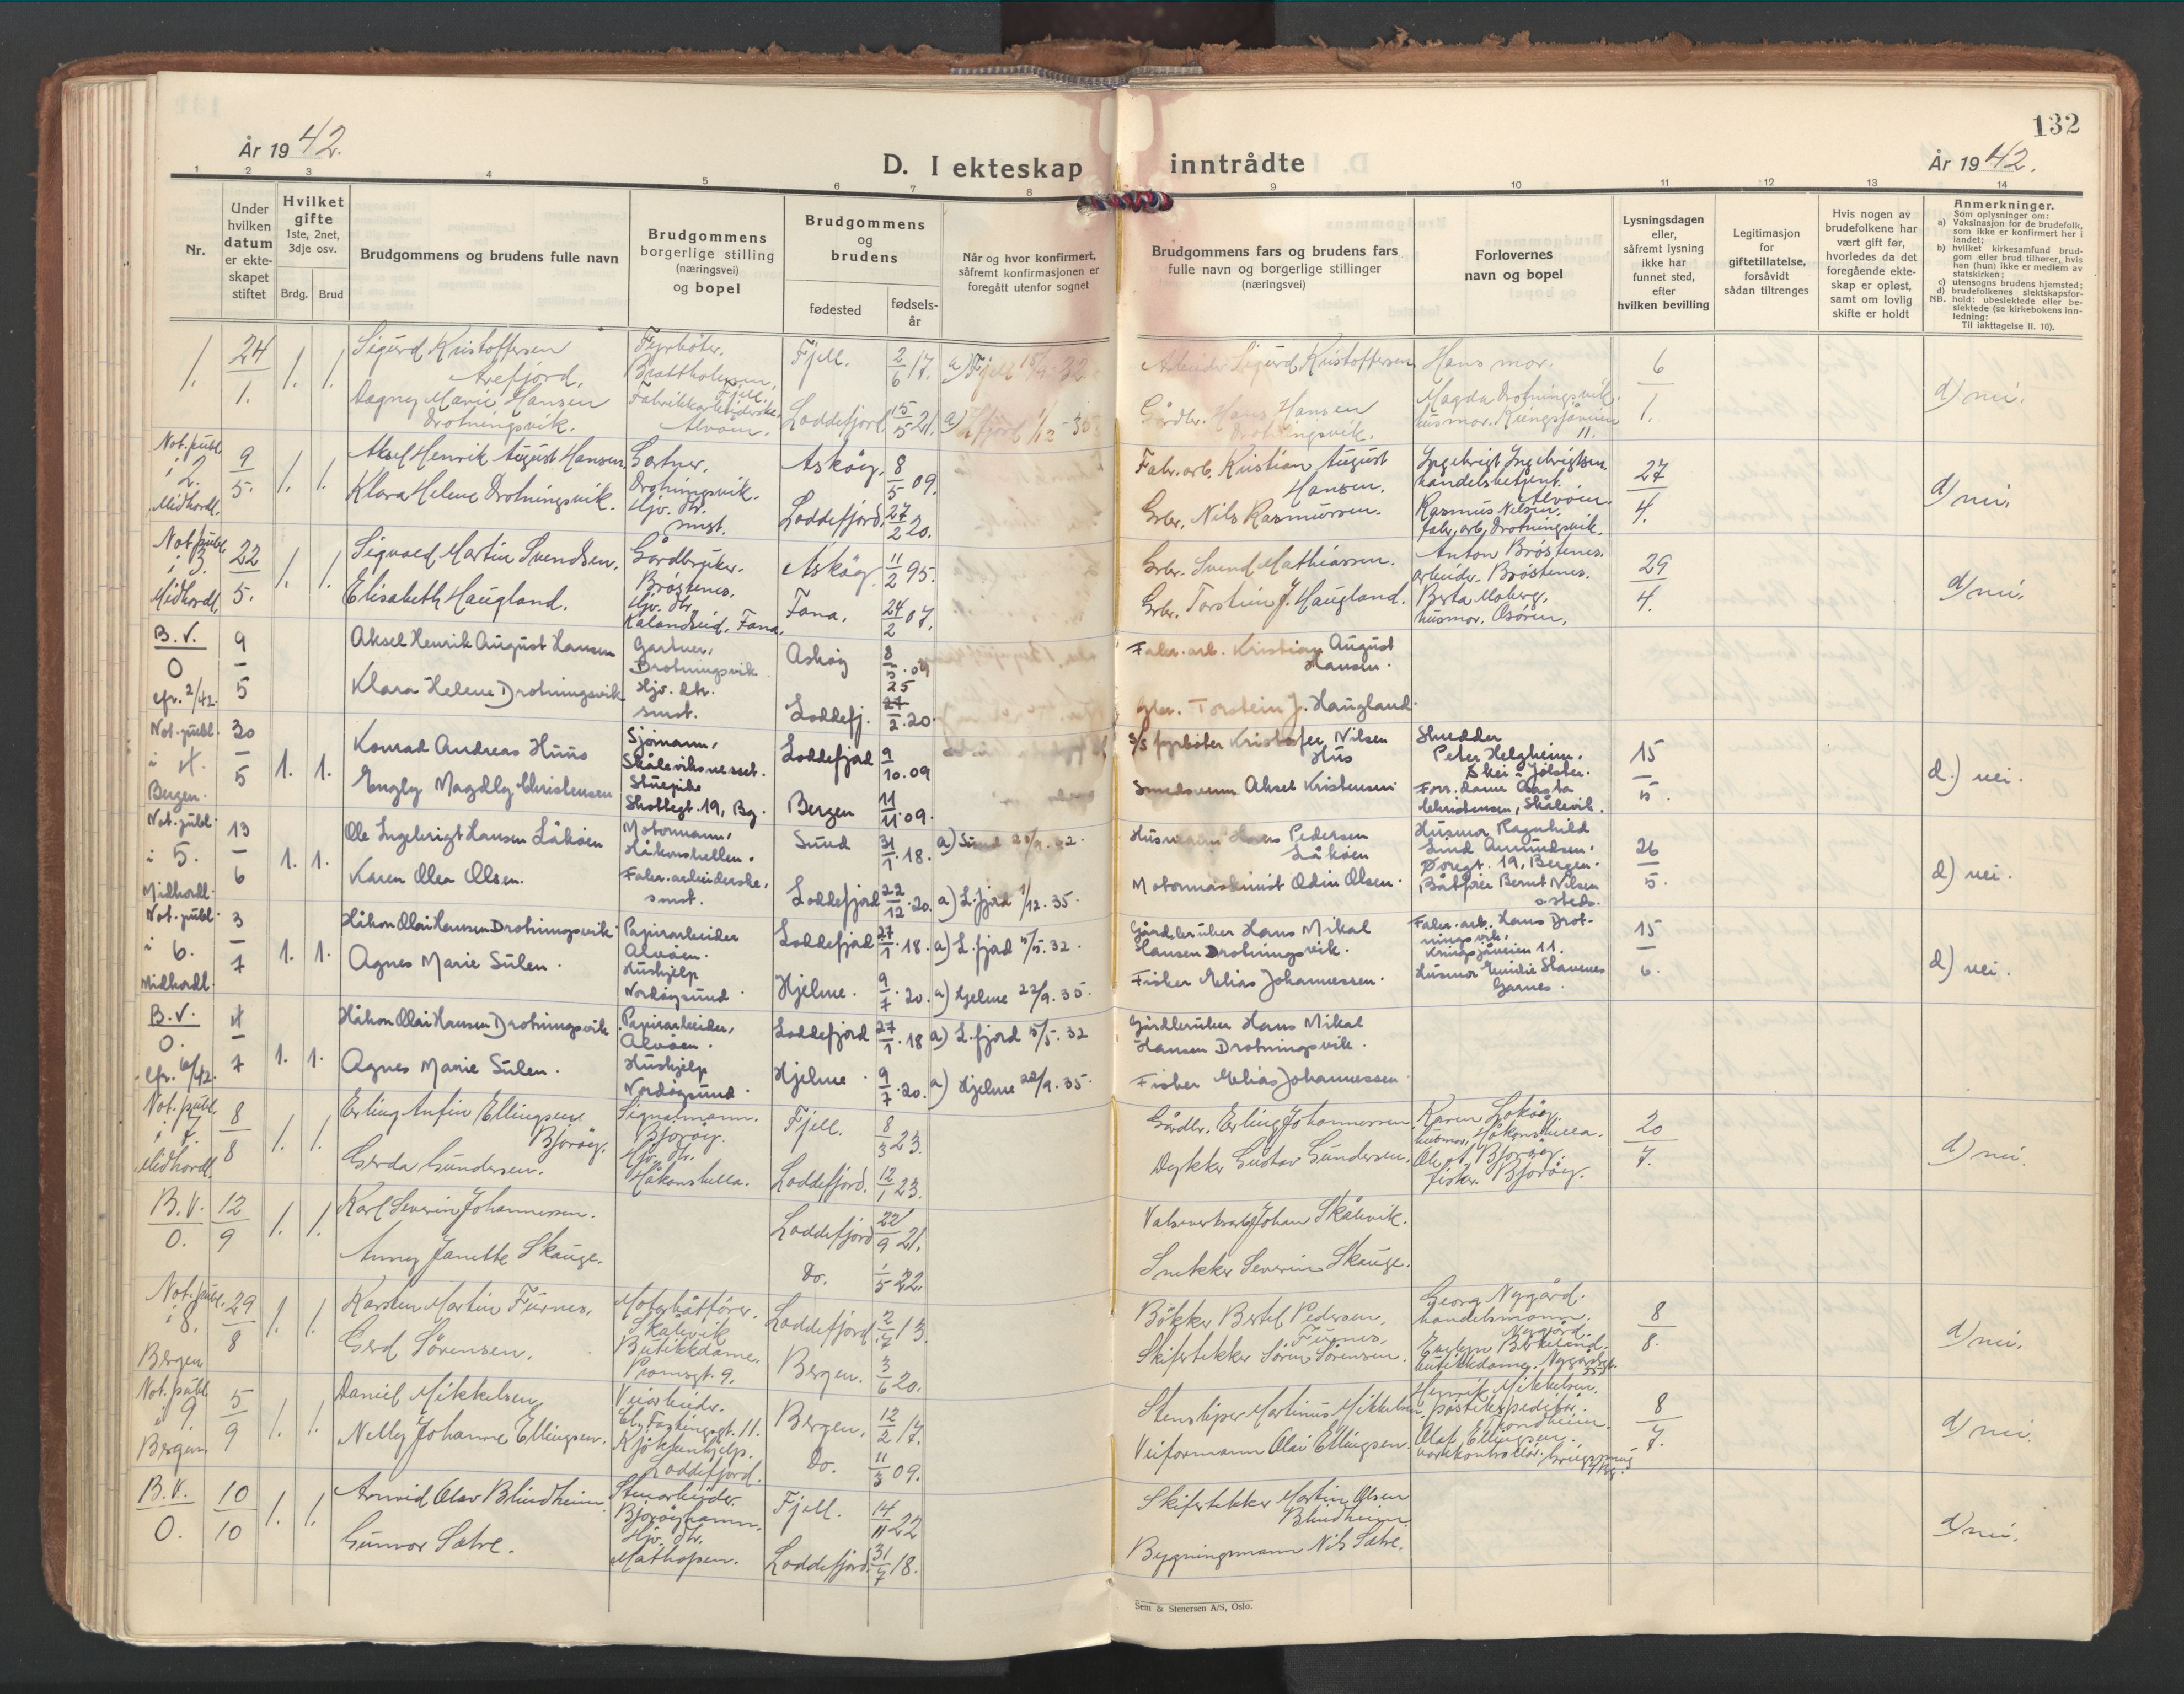 132
År 1942.
D. I ekteskap inntrådte
År 1942.
1 2 3 4 5 6 7 8 9 10 11 12 13 14
Nr.
Under hvilken datum er ekteskapet stiftet
Hvilket gifte
1ste, 2net, 3dje osv.
Brdg. Brud
Brudgommens og brudens fulle navn
Brudgommens borgerlige stilling (næringsvei) og bopel
Brudgommens og brudens
fødested
fødselsår
Når og hvor konfirmert, såfremt konfirmasjonen er foregått utenfor sognet
Brudgommens fars og brudens fars fulle navn og borgerlige stillinger (næringsvei)
Forlovernes navn og bopel
Lysningsdagen eller, såfremt lysning ikke har funnet sted, efter hvilken bevilling
Legitimasjon for giftetillatelse, forsåvidt sådan tiltrenges
Hvis nogen av brudefolkene har vært gift før, hvorledes da det foregående ekteskap er opløst, samt om lovlig skifte er holdt
Anmerkninger.
Som oplysninger om:
a) Vaksinasjon for de brudefolk, som ikke er konfirmert her i landet;
b) hvilket kirkesamfund brudgom eller brud tilhører, hvis han (hun) ikke er medlem av statskirken;
c) utensogns brudens hjemsted;
d) brudefolkenes slektskapsforhold: ubeslektede eller beslektede (se kirkebokens innledning:
NB. Til iakttagelse II. 10).
1. 24/1. 1. 1. Sigurd Kristoffersen Arefjord. Fyrbøter. Brattholmen, Fjell. Fjell. 2/6 17. a) Fjell 32. Arbeider Sigurd Kristoffersen Hans mor. 6/1. d) nei.
Dagny Marie Hansen Drotningsvik. Fabrikkarbeiderske. Alvøen. Loddefjord 15/5 21. a) Lfjord 1/12-35 Gårdbr. Hans Hansen Drotningsvik. Magda Drotningsvik. husmor. Kringsjåveien 11.
Not. publ. i 2. Midhordl. 9/5. 1. 1. Aksel Henrik August Hansen. Gartner. Drotningsvik. Askøy. 8/5 09. Fabr. arb. Kristian August Hansen. Ingebrigt Ingebrigtsen. handelsbetjent. Alvøen. 27/4. d) nei.
Klara Helene Drotningsvik. Hjv. dtr. smst. Loddefjord. 27/2 20. Grbr. Nils Rasmussen. Rasmus Nilsen. fabr. arb. Drotningsvik.
Not. publ. i 3. Midhordl. 22/5. 1. 1. Sigvald Martin Svendsen. Gårdbruker. Brøstenes. Askøy. 11/2 95. Grbr. Svend Mathiassen. Anton Brøstenes. arbeider. Brøstenes. 29/4. d) nei.
Elisabeth Haugland. Hjv. dtr. Kalandseid. Fana. Fana. 24/2 07. Grbr. Torstein J. Haugland. Berta Moberg. husmor. Osøren.
B.V. 0 cfr. 2/42 9/5 Aksel Henrik August Hansen Gartner, Drotningsvik Askøy 8/5.09 Fabr. arb. Kristian August Hansen.
Klara Helene Drotningsvik Hjv. dtr. smst. Loddefj. 25 27/2.20. Gbr. Torstein J. Haugland.
Not. publ. i 4. Bergen. 30/5 1. 1. Konrad Andreas Huus Sjømann, Skåleviksnesset. Loddefjord 9/10.09 S/S fyrbøter Kristofer Nilsen Hus Skredder Peter Helgheim. Skei i Jølster. 15/5. d.) nei.
Engly Magdly Christensen Stuepike Skottegt. 19, Bg. Bergen 11/11.09. Smedsvenn Aksel Kristensen Forr. dame Aasta Christensen, Skålevik.
Not. publ. i 5. Midhordl. 13/6 1. 1. Ole Ingebrigt Hansen Låkøen Motormann, Håkonshellen. Sund 31/1.18. a) Sund 32. Husmann Hans Pedersen Låkøen Husmor Ragnhild Lind Amundsen, Øvregt. 19, Bergen. 26/5. d) nei.
Karen Olea Olsen. Fabr. arbeiderske, smst. Loddefjord 22/12.20. a) L.fjord 1/12.35. Motormaskinist Odin Olsen. Båtfører Bernt Nilsen s. steds.
Not. publ. i 6. Midhordl. 3/7 1. 1. Håkon Olai Hansen Drotningsvik. Papirarbeider Alvøen. Loddefjord 27/1.18. a) L.fjord 5/5.32. Gårdbruker Hans Mikal Hansen Drotningsvik. Fabr. arb. Hans Drotningsvik, Kringsjåveien 11. 15/6. d) nei.
Agnes Marie Sulen. Hushjelp Nordøysund. Hjelme. 9/7.20. a) Hjelme 22/9.35. Fisker Melias Johannessen. Husmor Emilie Stavenes Garnes.
B.V. 0. cfr. 6/42. 4/7 1. 1. Håkon Olai Hansen Drotningsvik Papirarbeider, Alvøen. Loddefjord 27/1.18 a) L.fjord 5/5.32 Gårdbruker Hans Mikal Hansen Drotningsvik.
Agnes Marie Sulen. Hushjelp Nordøysund. Hjelme. 9/7.20. a) Hjelme 22/9.35. Fisker Melias Johannessen
Not. publ. i 7. Midhordl. 8/8 1. 1. Erling Anfin Ellingsen Bjorøy. Signalmann. Bjorøy. Fjell. 8/3 23. Gårdbr. Erling Johannessen. Karen Lokøy. husmor. Håkonshella. 20/7. d) nei.
Gerda Gundersen. Hjv. dtr. Håkonshella. Loddefjord. 12/1 23. Dykker Gustav Gundersen. Ole A. Bjorøy. fisker. Bjorøy.
B.V. 0. 12/9 1. 1. Karl Severin Johannessen. Loddefjord 22/9 21. Johan Skålevik.
Anny Janette Skauge. Do. 1/5 22. Snekker Severin Skauge.
Not. publ. i 8. Bergen 29/8 1. 1. Karsten Martin Furnes. Motorbåtfører. Skålevik Loddefjord 2/7 13. Bøkker Bertel Pedersen Furnes. Georg Nygård. handelsmann. Nygård. 8/8. d) nei.
Gerd Sørensen. Butikkdame. Promsgt. 9. Bergen. 3/6 20. Skifertekker Søren Sørensen. Birkeland. butikkdame. Nygårdsgt.
Not. publ. i 9. Bergen 5/9 1. 1. Daniel Mikkelsen. Veiarbeider. Chr. Fastingsgt. 11. Bergen. 12/2 17. Stensliper Martinus Mikkelsen. Henrik Mikkelsen. postekspeditør. Trondheim. 8/7. d) nei.
Nelly Johanne Ellingsen. Kjøkkenhjelp. Loddefjord. Do. 11/3 09. Veiformann Olai Ellingsen. Olaf Ellingsen. vaktkontrollør.
B.V. 0. 10/10 1. 1. Arnvid Olav Blindheim. Stuearbeider. Bjorøyhamn. Fjell. 14/11 22 Skifertekker Martin Olsen Blindheim. d) nei.
Gunvor Sætre. Hjv. dtr. Mathopen. Loddefjord. 31/7 18. Bygningsmann Nils Sætre.
Sem & Stenersen A/S, Oslo.